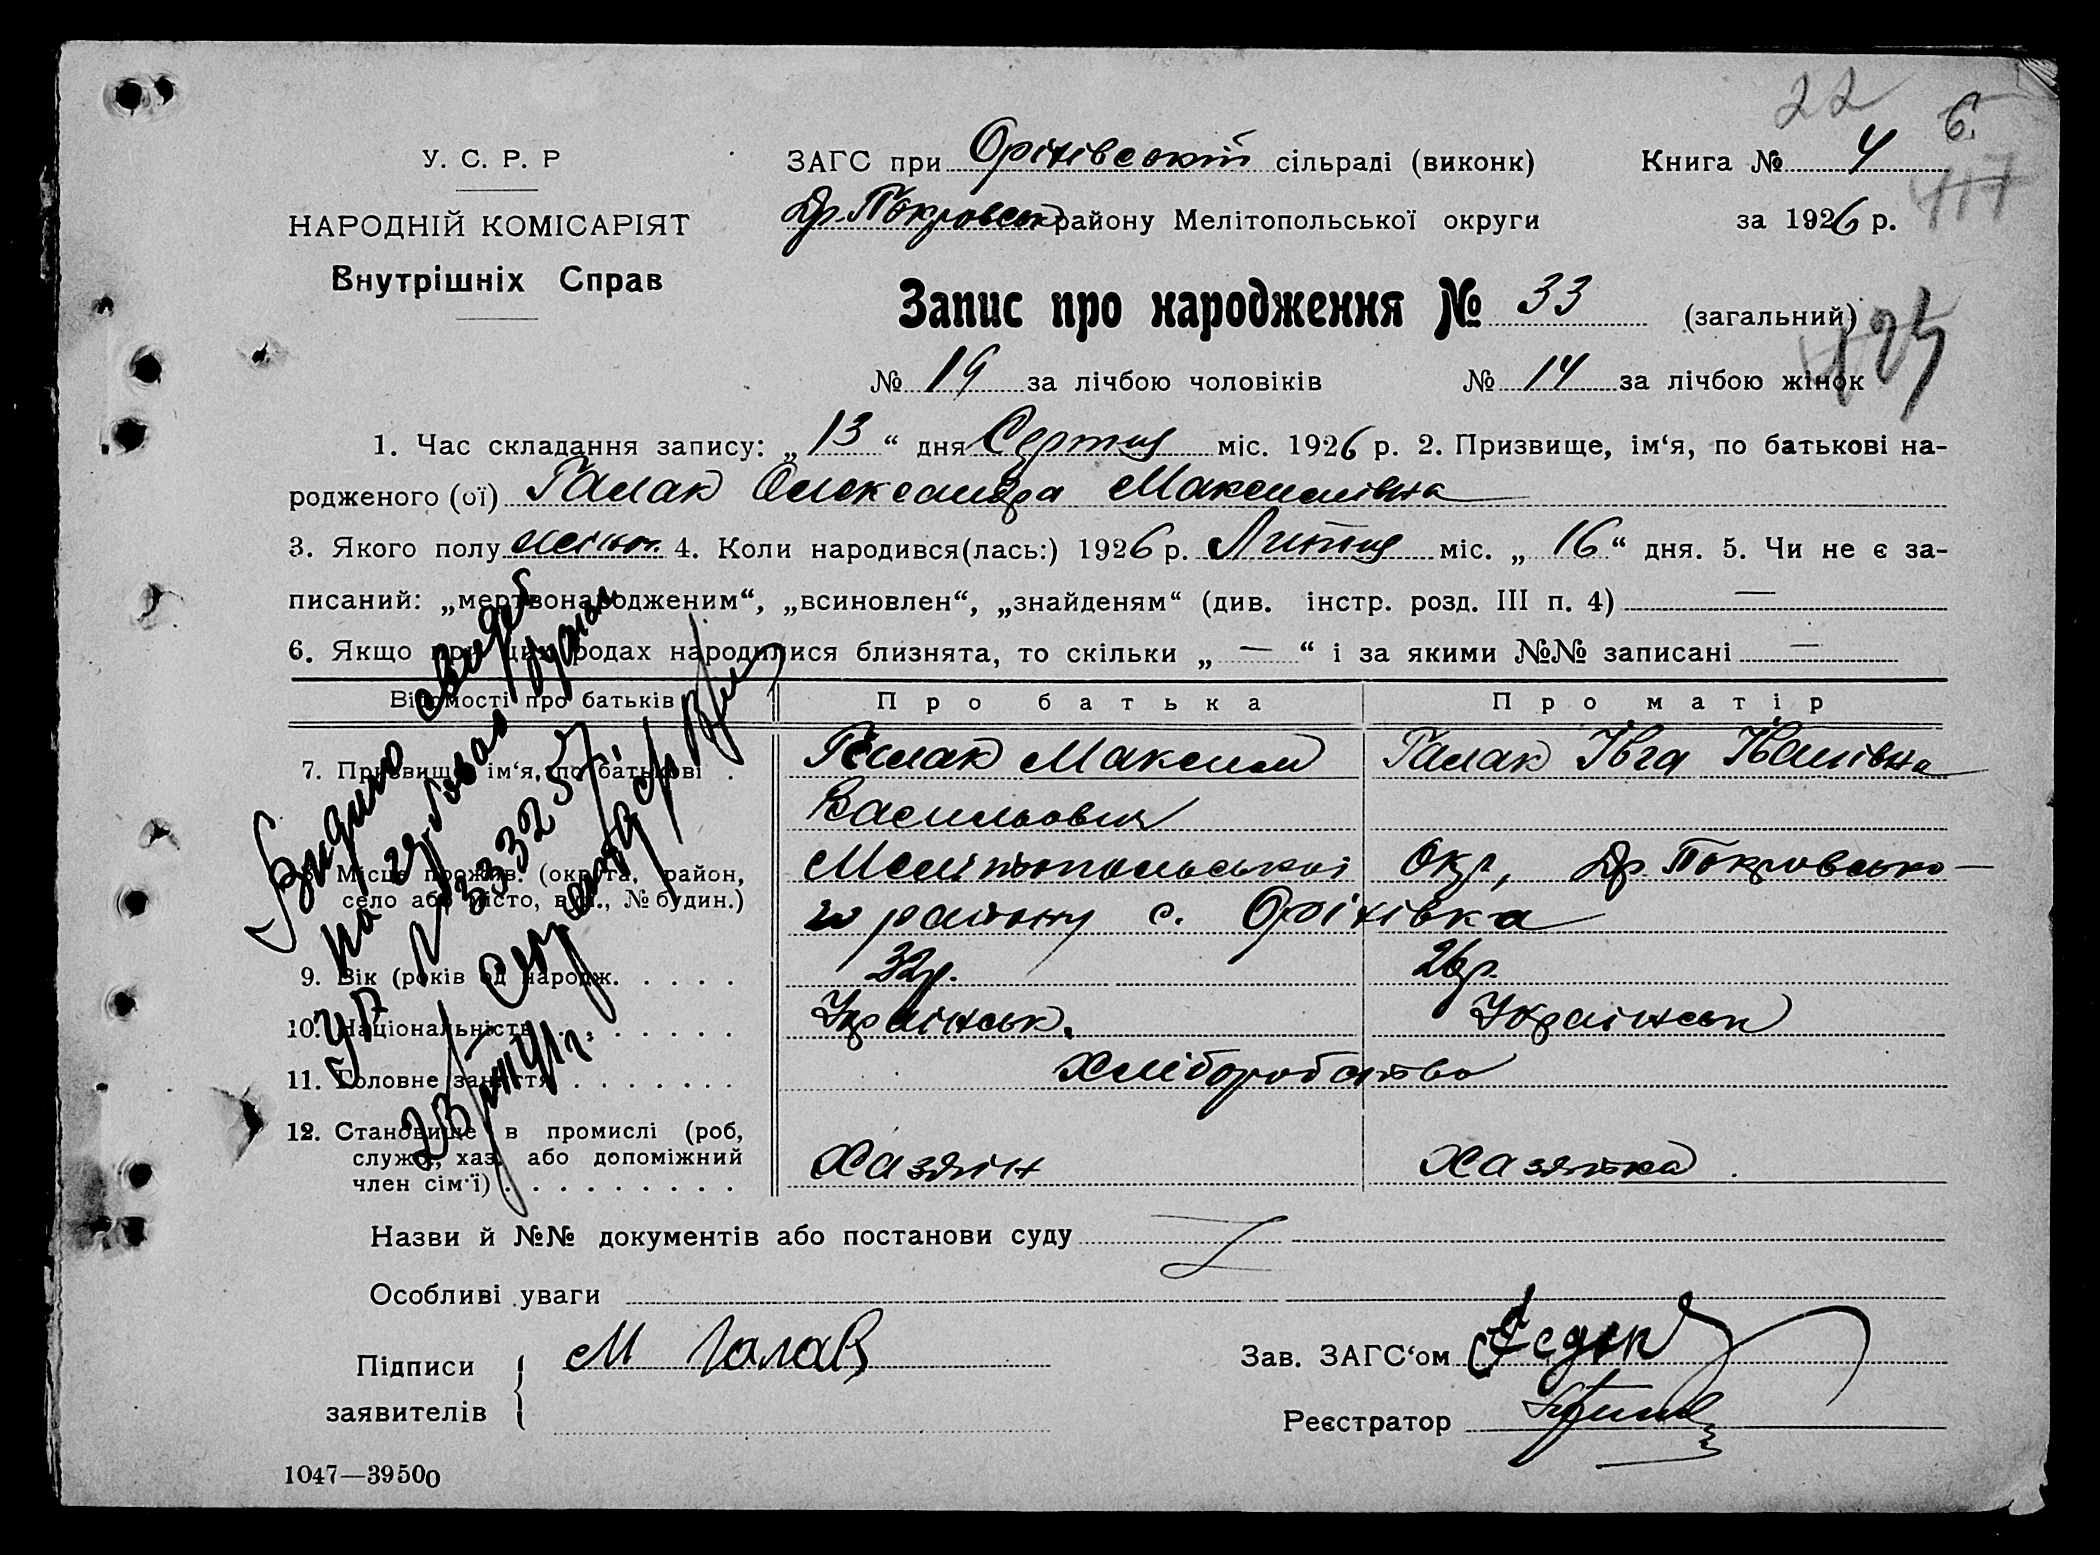 22
6
У. С. Р. Р
ЗАГС при Оріхівській сільраді (виконк)
Книга № 4
117
НАРОДНІЙ КОМІСАРІЯТ
Др. Покровськ району Мелітопольської округи
за 1926 р.
Внутрішніх Справ
Запис про народження № 33 (загальний)
125
№ 19 за лічбою чоловіків № 14 за лічбою жінок
1. Час складання запису: „ 13 “ дня Сертця міс. 1926 р. 2. Призвище, ім‘я, по батькові на-
родженого (ої) Галак Олександра Максимівна
3. Якого полу жіноч. 4. Коли народився(лась:) 1926 р. Лютця міс. „ 16 “ дня. 5. Чи не є за-
писаний: „мертвонародженим“, „всиновлен“, „знайденям“ (див. інстр. розд. III п. 4) —
6. Якщо при цих родах народилися близнята, то скільки „ — “ і за якими №№ записані —
Відомості про батьків
Про батька
Про матір
7. Призвище, ім‘я, по батькові .
Галак Максим
Галак Ївга Іванівна
Васильович
8. Місце прожив. (округа, район,
село або місто, вул., № будин.)
Мелітопольської Окр, Др Покровсько-
го району с. Оріхівка
9. Вік (років од народж. . . . .
32р.
26р.
10. Національність . . . . . . .
Украінськ.
Украінськ
11. Головне заняття . . . . . . .
Хліборобство
12. Становище в промислі (роб,
служб, хаз. або допоміжний
член сім‘ї) . . . . . . . . .
Хазяін
Хазяйка
Видано свидет
на
УП № 333257
23/VIII 41 г.
Назви й №№ документів або постанови суду
Особливі уваги
Підписи
заявителів
М Галак
Зав. ЗАГС‘ом
Реєстратор
1047—39500